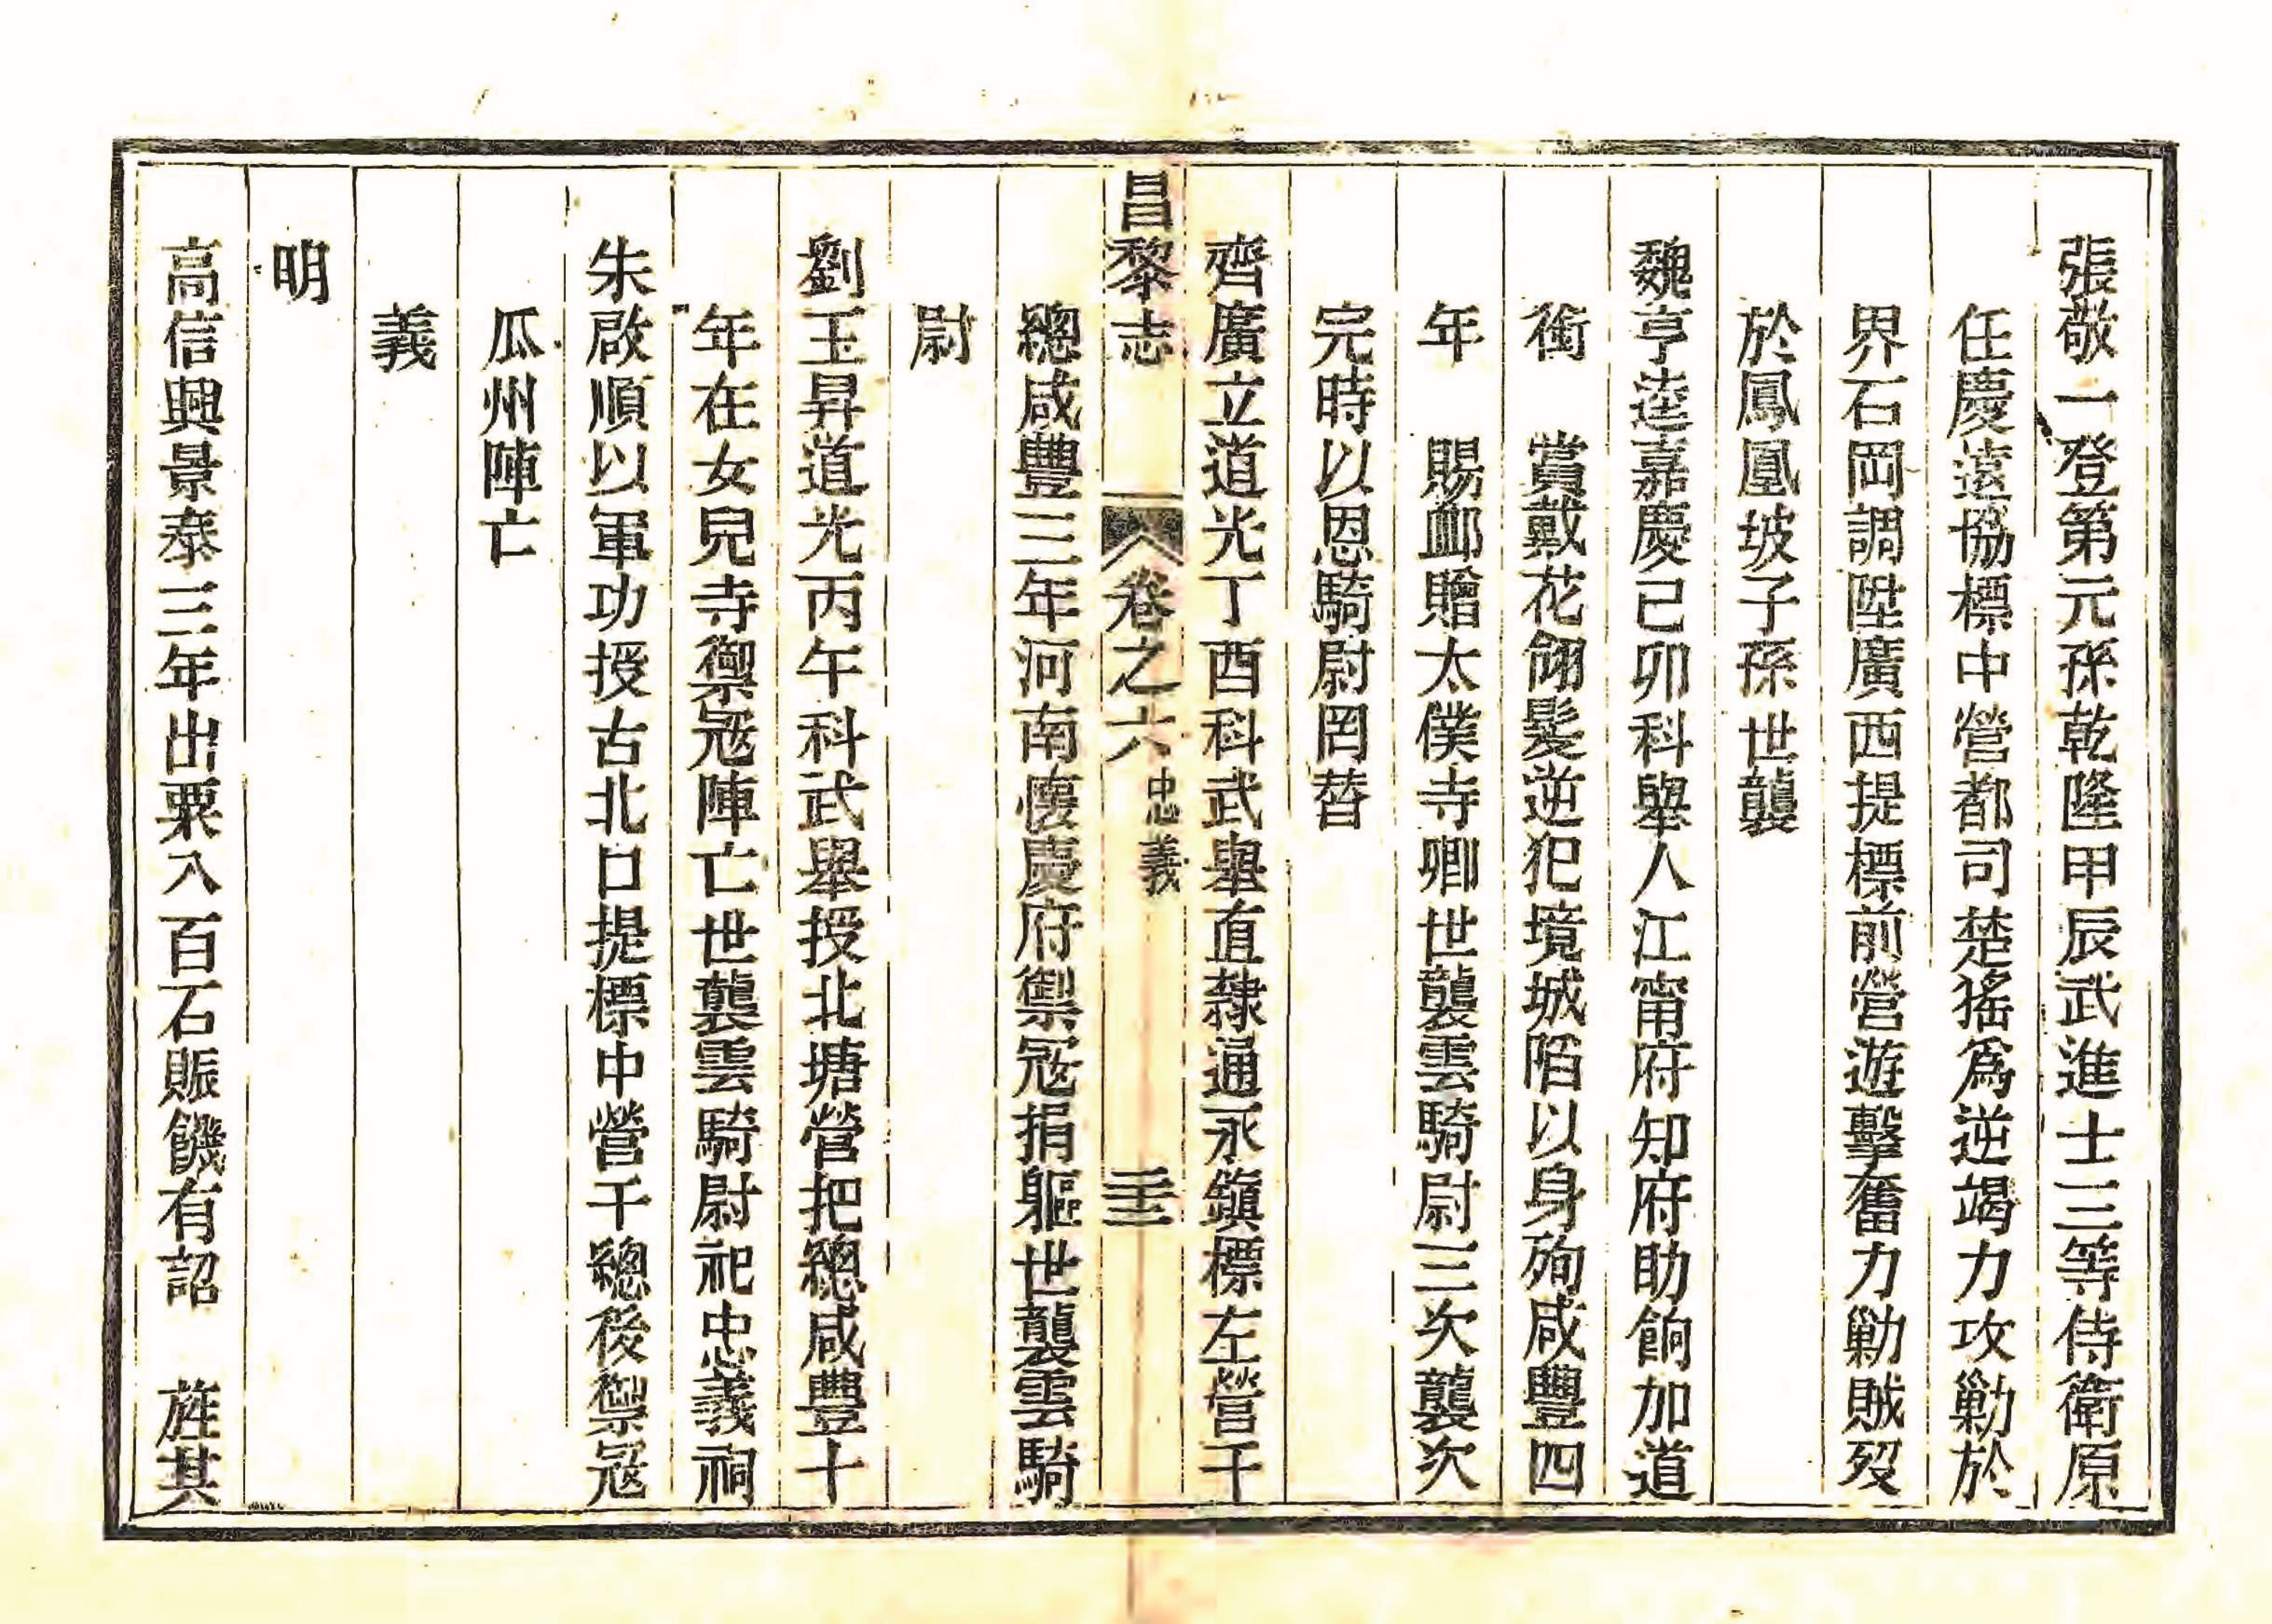 張敬一登第元孫乾隆甲辰武進士三等侍衛原
任慶遠協標中營都司楚搖爲逆竭力攻勦於
界石岡調陞廣西提標前營遊擊奮力勦賊歿
於鳳凰坡子孫世襲
魏亨逵嘉慶己卯科舉人江甯府知府助餉加道
銜　賞戴花翎髮逆犯境城陷以身殉咸豐四
年　賜卹贈太僕寺卿世襲雲騎尉三次襲次
完時以恩騎尉罔替
齊廣立道光丁酉科武舉直隸通永鎮標左營千
昌黎志　卷之六　忠義　二十三
總咸豐三年河南懷慶府禦冦捐軀世襲雲騎
尉
劉玉昇道光丙午科武舉授北塘營把總咸豐十
年在女兒寺禦冦陣亡世襲雲騎尉祀忠義祠
朱啟順以軍功授古北口提標中營千總後禦冦
瓜州陣亡
義
明
高信興景泰三年出粟八百石賑饑有詔　旌其